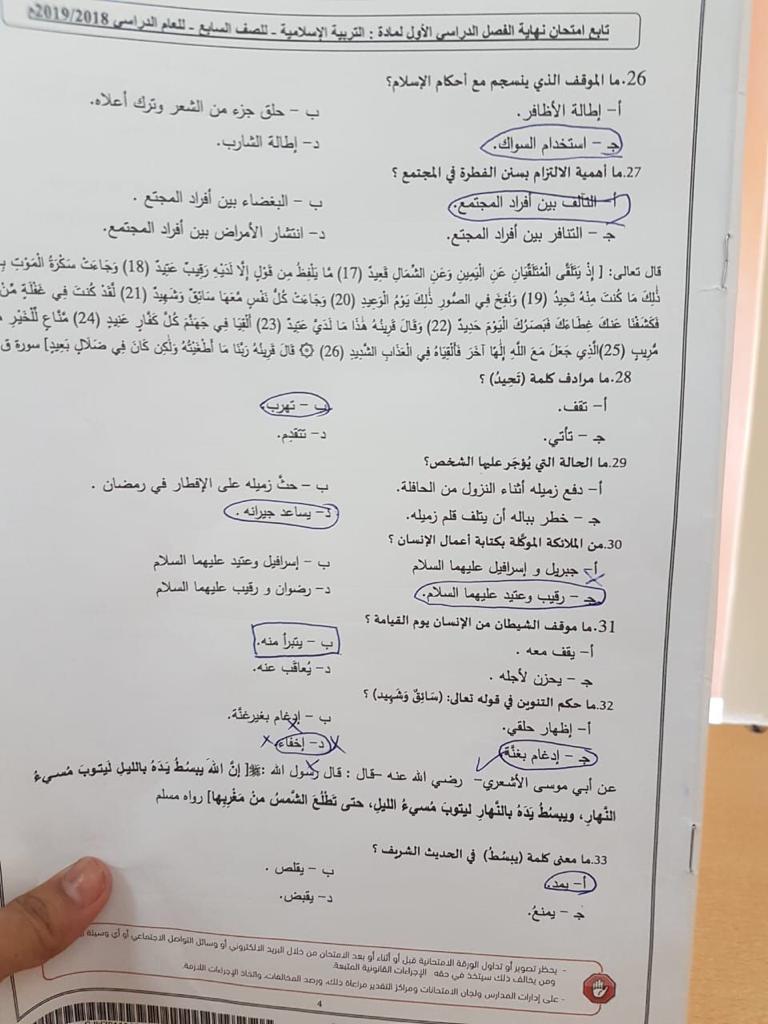 تابع امتحان نهاية الفصل الدراسي الأول لمادة : التربية الإسلامية – للصف السابع – للعام الدراسي 2019/2018م
26.ما الموقف الذي ينسجم مع أحكام الإسلام؟
أ– إطالة الأظافر. ب – حلق جزء من الشعر وترك أعلاه.
جـ – استخدام السواك. د– إطالة الشارب.
27.ما أهمية الالتزام بسنن الفطرة في المجتمع ؟
أ– التآلف بين أفراد المجتمع. ب – البغضاء بين أفراد المجتع .
جـ – التنافر بين أفراد المجتع. د– انتشار الأمراض بين أفراد المجتمع.
قال تعالى: [ إِذْ يَتَلَقَّى الْمُتَلَقِّيَانِ عَنِ الْيَمِينِ وَعَنِ الشِّمَالِ قَعِيدٌ (17) مَّا يَلْفِظُ مِن قَوْلٍ إِلَّا لَدَيْهِ رَقِيبٌ عَتِيدٌ (18) وَجَاءَتْ سَكْرَةُ الْمَوْتِ
ذَٰلِكَ مَا كُنتَ مِنْهُ تَحِيدُ (19) وَنُفِخَ فِي الصُّورِ ذَٰلِكَ يَوْمُ الْوَعِيدِ (20) وَجَاءَتْ كُلُّ نَفْسٍ مَّعَهَا سَائِقٌ وَشَهِيدٌ (21) لَّقَدْ كُنتَ فِي غَفْلَةٍ مِّنْ
فَكَشَفْنَا عَنكَ غِطَاءَكَ فَبَصَرُكَ الْيَوْمَ حَدِيدٌ (22) وَقَالَ قَرِينُهُ هَٰذَا مَا لَدَيَّ عَتِيدٌ (23) أَلْقِيَا فِي جَهَنَّمَ كُلَّ كَفَّارٍ عَنِيدٍ (24) مَّنَّاعٍ لِّلْخَيْرِ
مُّرِيبٍ (25)الَّذِي جَعَلَ مَعَ اللَّهِ إِلَٰهًا آخَرَ فَأَلْقِيَاهُ فِي الْعَذَابِ الشَّدِيدِ (26) ۞ قَالَ قَرِينُهُ رَبَّنَا مَا أَطْغَيْتُهُ وَلَٰكِن كَانَ فِي ضَلَالٍ بَعِيدٍ] سورة ق
28.ما مرادف كلمة (تَحِيدُ) ؟
أ– تقف. ب – تهرب.
جـ – تأتي. د– تتقدم.
29.ما الحالة التي يُؤجَر عليها الشخص؟
أ– دفع زميله أثناء النزول من الحافلة. ب – حثَّ زميله على الإفطار في رمضان .
جـ – خطر بباله أن يتلف قلم زميله. د– يساعد جيرانه .
30.من الملائكة الموكَّلة بكتابة أعمال الإنسان ؟
أ– جبريل و إسرافيل عليهما السلام ب – إسرافيل وعتيد عليهما السلام
جـ – رقيب وعتيد عليهما السلام. د– رضوان و رقيب عليهما السلام
31.ما موقف الشيطان من الإنسان يوم القيامة ؟
أ– يقف معه . ب – يتبرأ منه.
جـ – يحزن لأجله . د– يُعاقَب عنه.
32.ما حكم التنوين في قوله تعالى: (سَائِقٌ وَشَهِيد) ؟
أ– إظهار حلقي. ب – إدغام بغيرغنَّة.
جـ – إدغام بغنَّة د– إخفاء.
عن أبي موسى الأشعري– رضي الله عنه –قال : قال رسول الله ﷺ:[ إنَّ اللهَ يبسُطُ يَدَهُ بالليلِ لَيتوبَ مُسيءُ
النَّهارِ، ويبسُطُ يَدَهُ بالنَّهارِ ليتوبَ مُسيءُ الليلِ، حتى تَطْلُعَ الشَّمسُ مِنْ مَغْرِبِها] رواه مسلم
33.ما معنى كلمة (يبسُطُ) في الحديث الشريف ؟
أ– يمد. ب – يقلص .
جـ – يمنعُ. د– يقبض.
- يحظر تصوير أو تداول الورقة الامتحانية قبل أو أثناء أو بعد الامتحان من خلال البريد الالكتروني أو وسائل التواصل الاجتماعي أو أي وسيلة
ومن يخالف ذلك سيتخذ في حقه الإجراءات القانونية المتبعة.
- على إدارات المدارس ولجان الامتحانات ومراكز التقدير مراعاة ذلك، ورصد المخالفات، واتخاذ الإجراءات اللازمة.
4